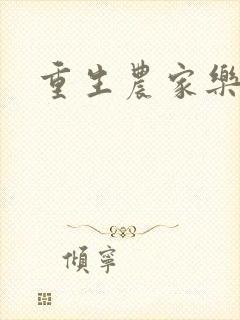 重生農家樂
傾寧